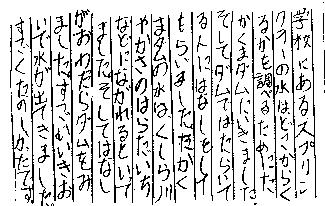 学校にあるスプリン
クラーの水はどこからく
るかを調るためたた
がくまダムにいきました
そしてダムではたらいて
る人にはなしをして
もらいました。たかく
まダムの水は、くしら川
やかさのはらだいち
などにながれるといて
ました。そしてはなし
がおわたらダムをみ
ました。すごいいきお
いで水が出てきました
すごくたのしかたです。